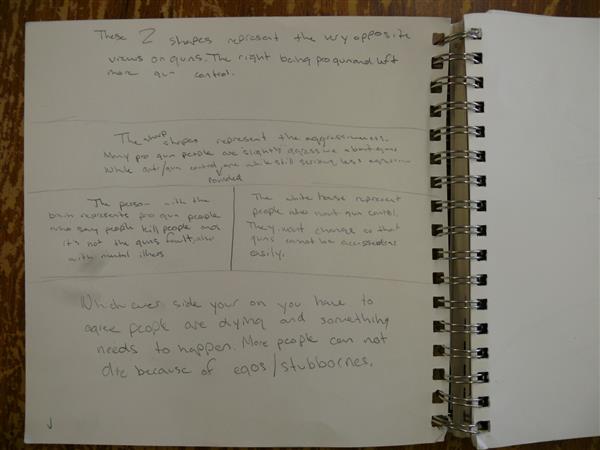 These 2 shapes represent the very opposite
views on guns. The right being pro gun and left
more gun control.
The sharp shapes represent the aggressiveness.
Many pro gun people are slightly aggressive about guns
While anti/gun control, are while still serious, less aggressive
rounded
The person with the
brain represents pro gun people
who say people kill people and
it's not the guns fault,
with mental illness
The white house represent
people who want gun control.
They want change so that
guns cannot be accessed
easily.
Which ever side your on you have to
agree people are dying and something
needs to happen. More people can not
die because of egos/stubbornes.